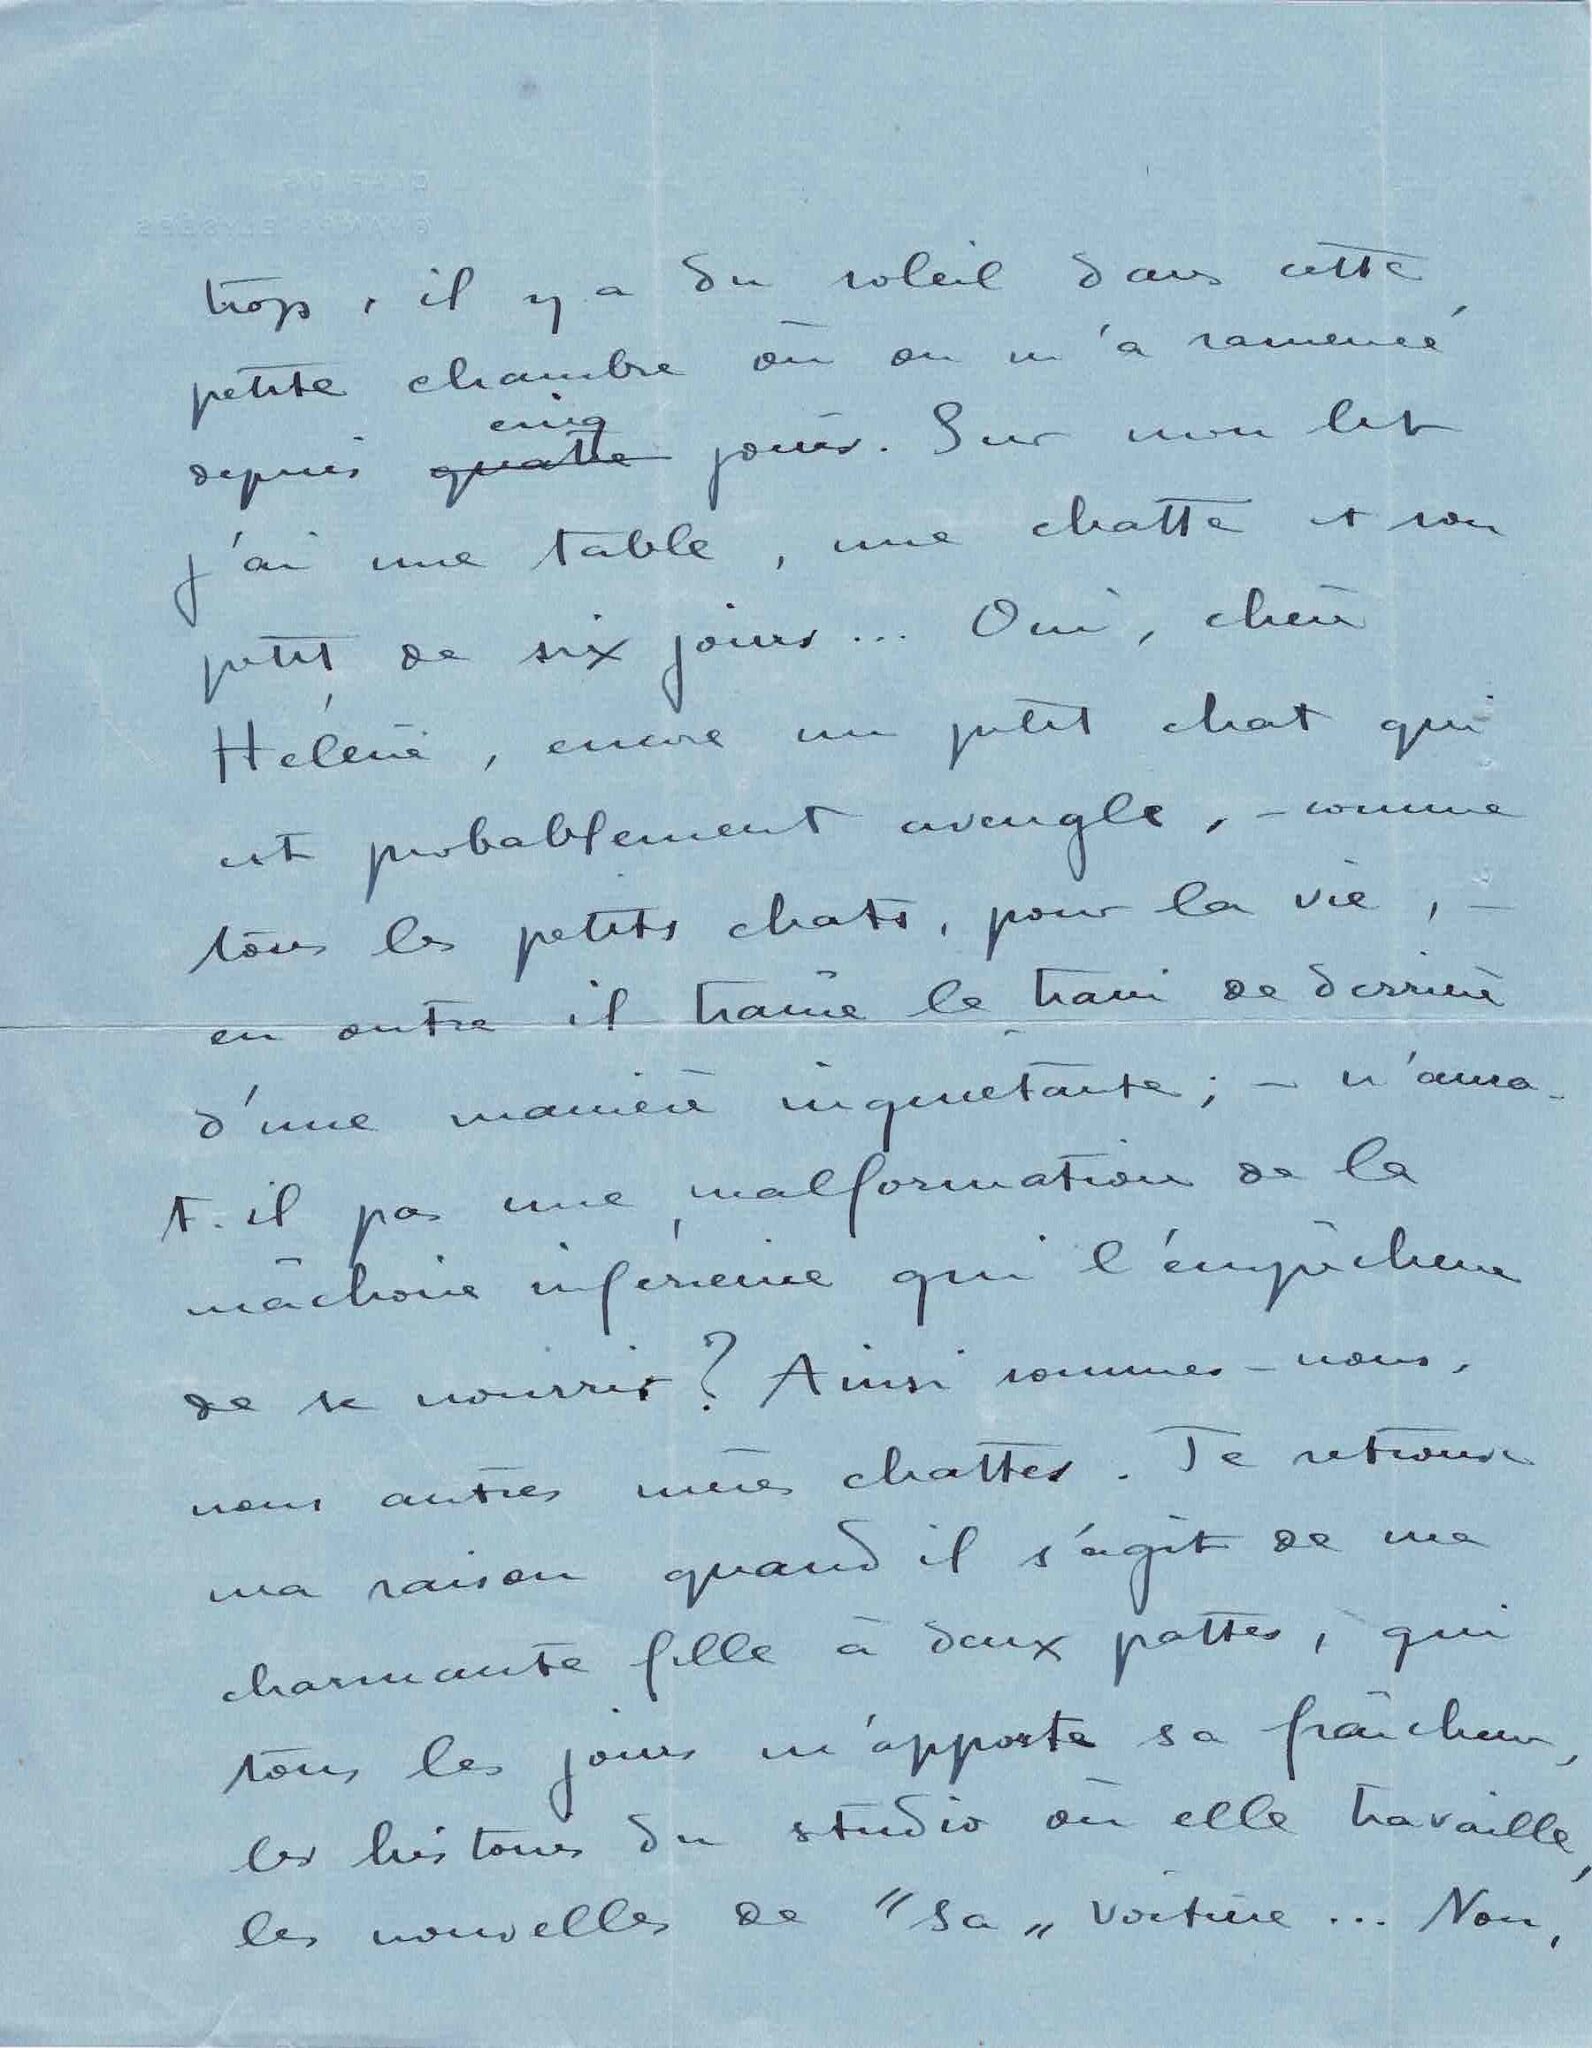 trop, il y a du soleil dans cette
petite chambre où on m'a ramenée
cinq
depuis quatre jours. Sur mon lit
j'ai une table, une chatte et son
petit de six jours... Oui, chère
Hélène, encore un petit chat qui
est probablement aveugle, - comme
tous les petits chats, pour la vie, -
en outre il traîne le train de derrière
d'une manière inquiétante; - n'aura-
t-il pas une malformation de la
mâchoire inférieure qui l'empêchera
de se nourrir? Ainsi sommes-nous,
nous autres mères chattes. Je retrouve
ma raison quand il s'agit de ma
charmante fille à deux pattes, qui
tous les jours m'apporte sa fraîcheur,
les histoires du studio où elle travaille,
les nouvelles de "sa" voiture... Non,